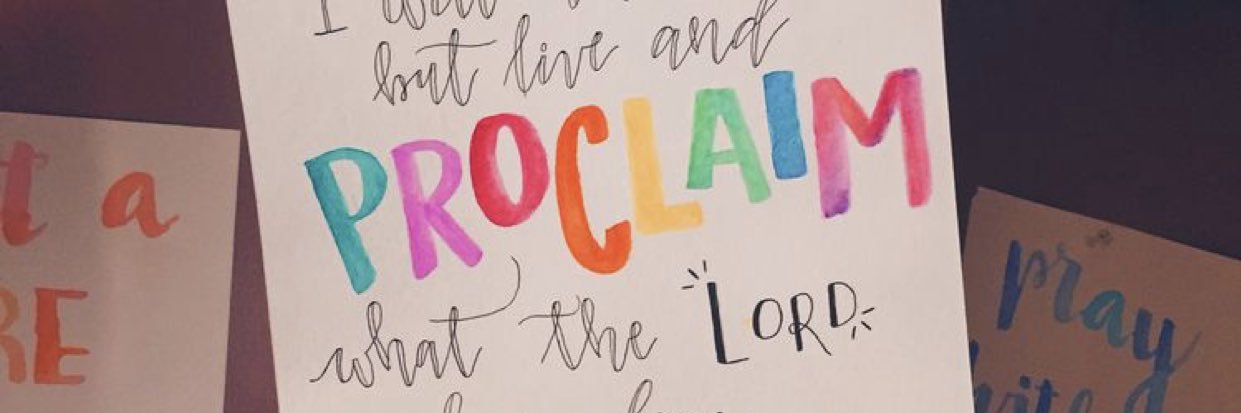 I will
but live and
PROCLAIM
what the LORD
t a
RE
pray